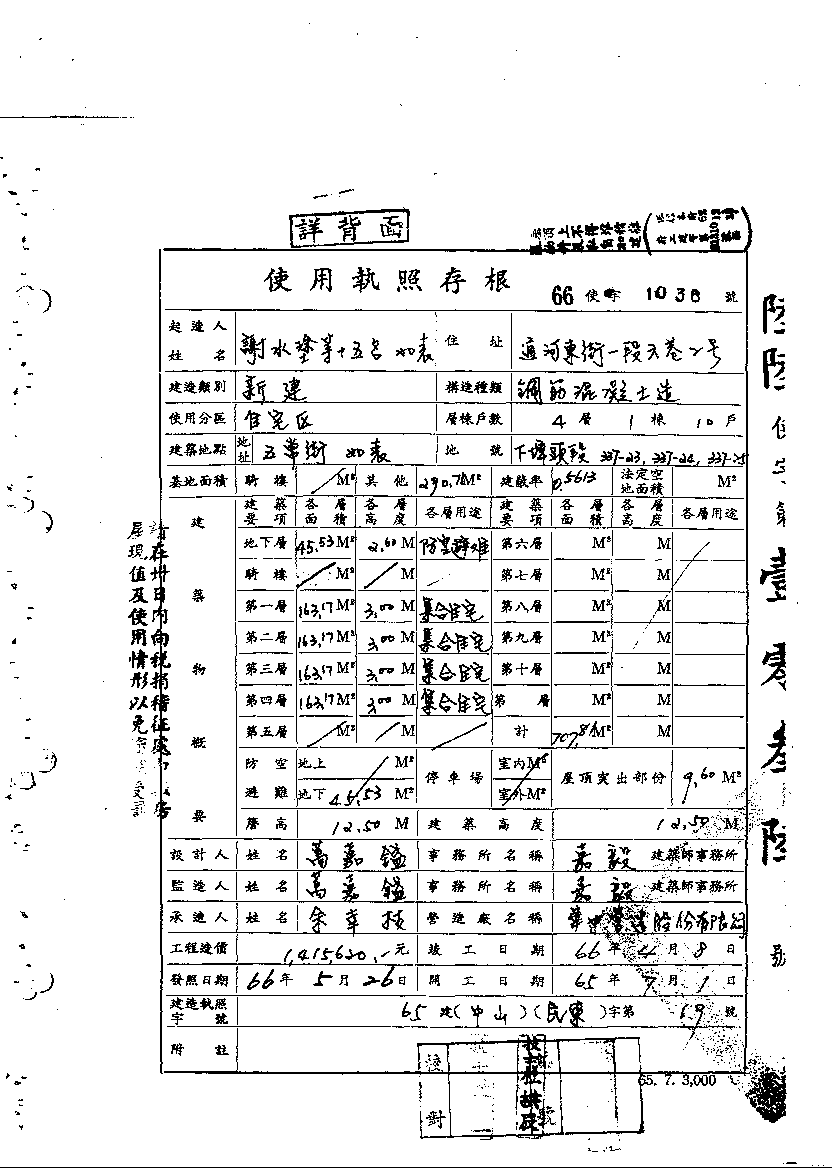 詳背面
使用執照存根
66 使字 1036 號
起造人姓名 謝水塗等十五名 如表 住址 迪河東街一段天巷2号
建造類別 新建 構造種類 鋼筋混凝土造
使用分區 住宅区 層棟戶數 4層 1棟 10戶
建築地點 地址 五常街 如表 地號 下埤頭段 337-23, 337-24, 337-25
基地面積 騎樓 / M² 其他 290.71M² 建蔽率 0.5613 法定空地面積 M²
建築物概要
建築要項 各層面積 各層高度 各層用途 建築要項 各層面積 各層高度 各層用途
地下層 45.53 M² 2.60 M 防空避难 第六層 M² M
騎樓 / M² / M 第七層 M² M
第一層 163.17 M² 3.00 M 集合住宅 第八層 M² M
第二層 163.17 M² 3.00 M 集合住宅 第九層 M² M
第三層 163.17 M² 3.00 M 集合住宅 第十層 M² M
第四層 163.17 M² 3.00 M 集合住宅 第 層 M² M
第五層 / M² / M / 計 707.81M² M
防空避難 地上 / M² 停車場 室內M² 屋頂突出部份 9.60 M²
地下 45.53 M² 室外M²
簷高 12.50 M 建築高度 12.50 M
設計人 姓名 萬嘉鎰 事務所名稱 嘉毅 建築師事務所
監造人 姓名 萬嘉鎰 事務所名稱 嘉毅 建築師事務所
承造人 姓名 余幸枝 營造廠名稱 營造股份有限公司
工程造價 1,415,620.-元 竣工日期 66年4月8日
發照日期 66年5月26日 開工日期 65年7月1日
建造執照字號 65 建(中山)(民東)字第 69 號
附註
65. 7. 3,000
校對
請在卅日內向稅捐稽征處
屋現值及使用情形以免
陸陸使字第壹零叁陸號